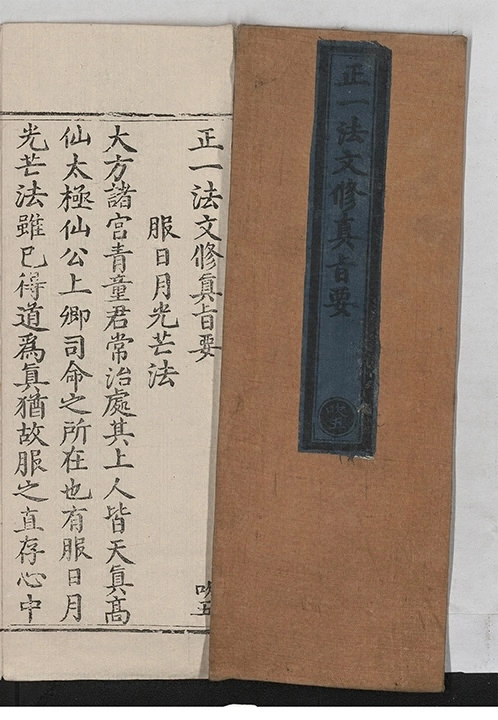 正一法文修真旨要
吹五
正一法文修眞旨要
吹五
服日月光芒法
大方諸宮青童君常治處其上人皆天眞髙
仙太極仙公上卿司命之所在也有服日月
光芒法雖已得道爲眞猶故服之直存心中